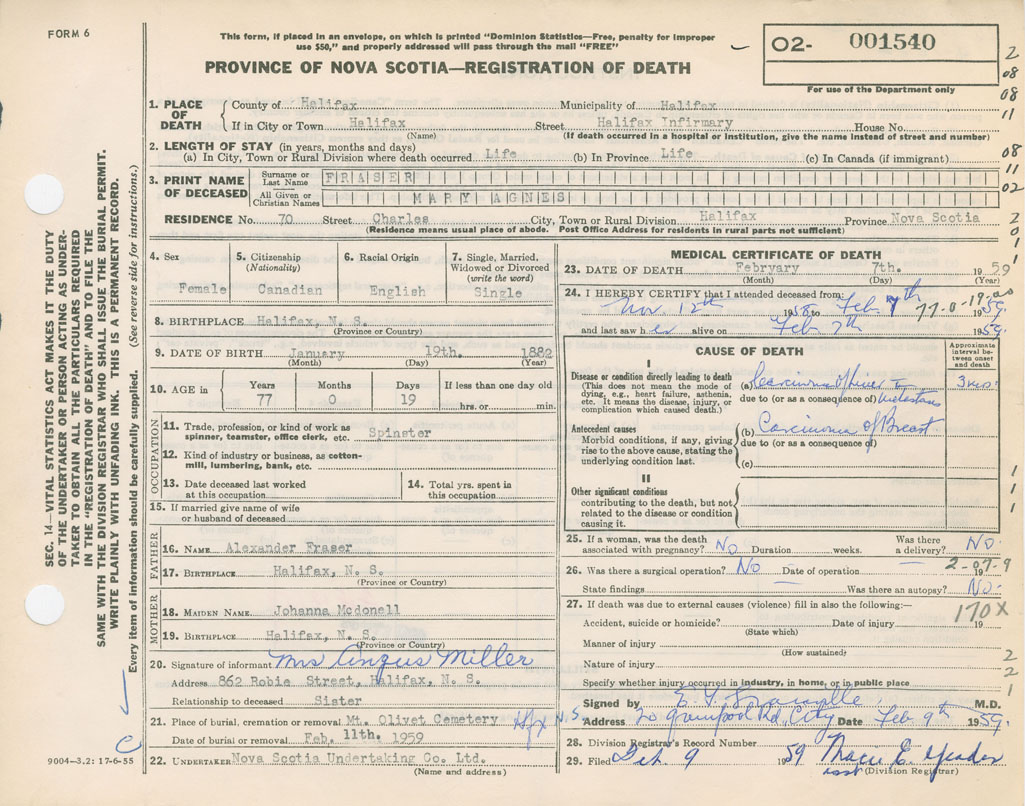 FORM 6
This form, if placed in an envelope, on which is printed "Dominion Statistics—Free, penalty for improper
use $50," and properly addressed will pass through the mail "FREE"
PROVINCE OF NOVA SCOTIA—REGISTRATION OF DEATH
O2- 001540
For use of the Department only
2
08
08
11
08
11
02
2
0
1
1
SEC. 14—VITAL STATISTICS ACT MAKES IT THE DUTY
OF THE UNDERTAKER OR PERSON ACTING AS UNDER-
TAKER TO OBTAIN ALL THE PARTICULARS REQUIRED
IN THE "REGISTRATION OF DEATH" AND TO FILE THE
SAME WITH THE DIVISION REGISTRAR WHO SHALL ISSUE THE BURIAL PERMIT.
WRITE PLAINLY WITH UNFADING INK. THIS IS A PERMANENT RECORD.
Every item of information should be carefully supplied. (See reverse side for instructions.)
1. PLACE OF DEATH
County of Halifax Municipality of Halifax
If in City or Town Halifax Street Halifax Infirmary House No.
(Name) (If death occurred in a hospital or institution, give the name instead of street and number)
2. LENGTH OF STAY (in years, months and days)
(a) In City, Town or Rural Division where death occurred Life (b) In Province Life (c) In Canada (if immigrant)
3. PRINT NAME OF DECEASED
Surname or Last Name FRASER
All Given or Christian Names MARY AGNES
RESIDENCE No. 70 Street Charles City, Town or Rural Division Halifax Province Nova Scotia
(Residence means usual place of abode. Post Office Address for residents in rural parts not sufficient)
4. Sex
Female
5. Citizenship
(Nationality)
Canadian
6. Racial Origin
English
7. Single, Married,
Widowed or Divorced
(write the word)
Single
8. BIRTHPLACE Halifax, N. S.
(Province or Country)
9. DATE OF BIRTH January 19th. 1882
(Month) (Day) (Year)
10. AGE in
Years Months Days If less than one day old
77 0 19 hrs. or min.
OCCUPATION
11. Trade, profession, or kind of work as
spinner, teamster, office clerk, etc. Spinster
12. Kind of industry or business, as cotton-
mill, lumbering, bank, etc.
13. Date deceased last worked
at this occupation
14. Total yrs. spent in
this occupation
15. If married give name of wife
or husband of deceased
FATHER
16. NAME Alexander Fraser
17. BIRTHPLACE Halifax, N. S.
(Province or Country)
MOTHER
18. MAIDEN NAME Johanna Mcdonell
19. BIRTHPLACE Halifax, N. S.
(Province or Country)
20. Signature of informant Mrs Angus Miller
Address 862 Robie Street, Halifax, N. S.
Relationship to deceased Sister
21. Place of burial, cremation or removal Mt. Olivet Cemetery Hfx N.S.
Date of burial or removal Feb. 11th. 1959
22. UNDERTAKER Nova Scotia Undertaking Co. Ltd.
(Name and address)
9004—3.2: 17-6-55
MEDICAL CERTIFICATE OF DEATH
23. DATE OF DEATH Febryary 7th. 1959
(Month) (Day) (Year)
24. I HEREBY CERTIFY that I attended deceased from:
Nov. 12th 1958 to Feb 7th 1959
77-0-19-00
and last saw her alive on Feb 7th 1959.
CAUSE OF DEATH
Approximate
interval be-
tween onset
and death
I
Disease or condition directly leading to death
(This does not mean the mode of
dying, e.g., heart failure, asthenia,
etc. It means the disease, injury, or
complication which caused death.)
(a) Carcinoma of liver
due to (or as a consequence of) metastasis
Antecedent causes
Morbid conditions, if any, giving
rise to the above cause, stating the
underlying condition last.
(b) Carcinoma of Breast
due to (or as a consequence of)
(c)
II
Other significant conditions
contributing to the death, but not
related to the disease or condition
causing it.
1
1
1
25. If a woman, was the death
associated with pregnancy? No Duration weeks. Was there
a delivery? No.
26. Was there a surgical operation? No Date of operation 19
2-07-9
State findings Was there an autopsy? No.
27. If death was due to external causes (violence) fill in also the following:—
170X
Accident, suicide or homicide? Date of injury 19
(State which)
Manner of injury
(How sustained)
Nature of injury
2
2
1
Specify whether injury occurred in industry, in home, or in public place
Signed by M.D.
Address City Date Feb 9th 1959.
28. Division Registrar's Record Number
29. Filed Feb. 9 1959
asst (Division Registrar)